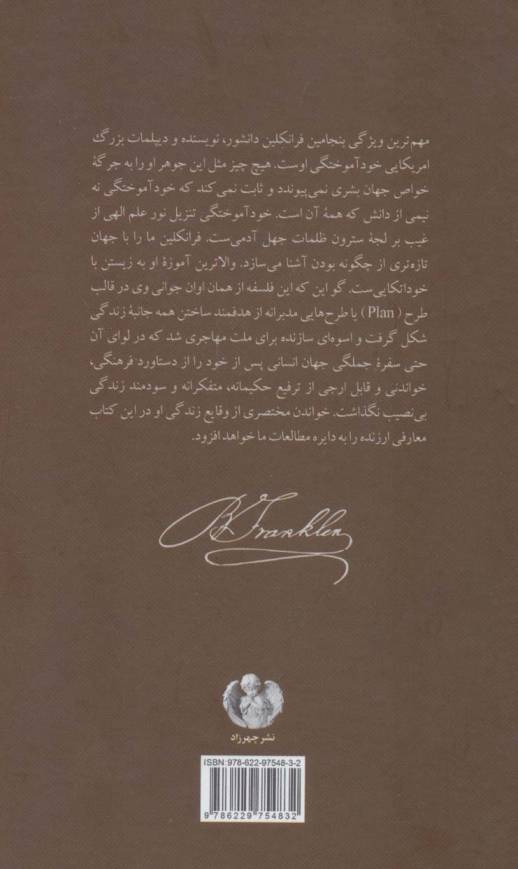 مهم‌ترین ویژگی بنجامین فرانکلین دانشور، نویسنده و دیپلمات بزرگ
امریکایی خودآموختگی اوست. هیچ چیز مثل این جوهر او را به جرگهٔ
خواص جهان بشری نمی‌پیوندد و ثابت نمی‌کند که خودآموختگی نه
نیمی از دانش که همهٔ آن است. خودآموختگی تنزیل نور علم الهی از
غیب بر لجهٔ سترون ظلمات جهل آدمی‌ست. فرانکلین ما را با جهان
تازه‌تری از چگونه بودن آشنا می‌سازد. والاترین آموزهٔ او به زیستن با
خوداتکایی‌ست. گو این که این فلسفه از همان اوان جوانی وی در قالب
طرح (Plan) یا طرح‌هایی مدبرانه از هدفمند ساختن همه جانبهٔ زندگی
شکل گرفت و اسوه‌ای سازنده برای ملت مهاجری شد که در لوای آن
حتی سفرهٔ جملگی جهان انسانی پس از خود را از دستاورد فرهنگی،
خواندنی و قابل ارجی از ترفیع حکیمانه، متفکرانه و سودمند زندگی
بی‌نصیب نگذاشت. خواندن مختصری از وقایع زندگی او در این کتاب
معارفی ارزنده را به دایره مطالعات ما خواهد افزود.
B Franklin
نشر چهرزاد
ISBN:978-622-97548-3-2
9 786229 754832